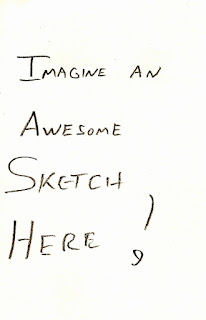 IMAGINE AN
AWESOME
SKETCH
HERE!